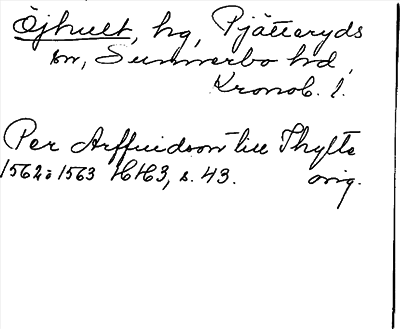 Öjhult, hg, Pjätteryds
sn, Sunnerbo hd,
Kronob. l.
Per Arffuidson till Thylte
1562 o 1563 HH3, s. 43. orig.